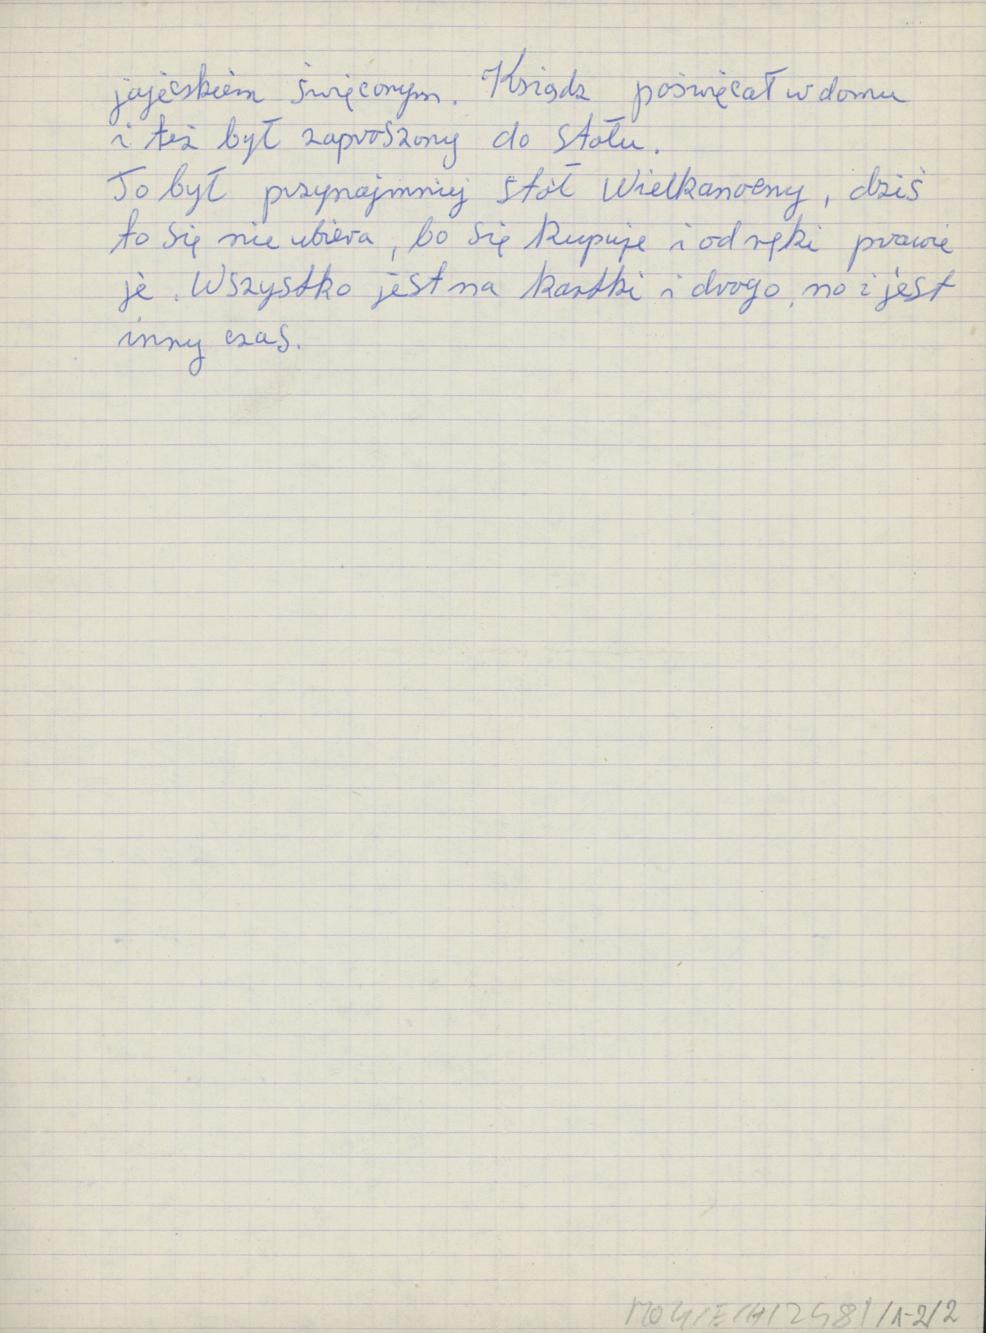 jajeczkiem święconym. Ksiądz poświęcał w domu
i też był zaproszony do stołu.
To był przynajmniej stół Wielkanocny, dziś
to się nie ubiera, bo się kupuje i od ręki prawie
je. Wszystko jest na kartki i drogo, no i jest
inny czas.
/1-2/2